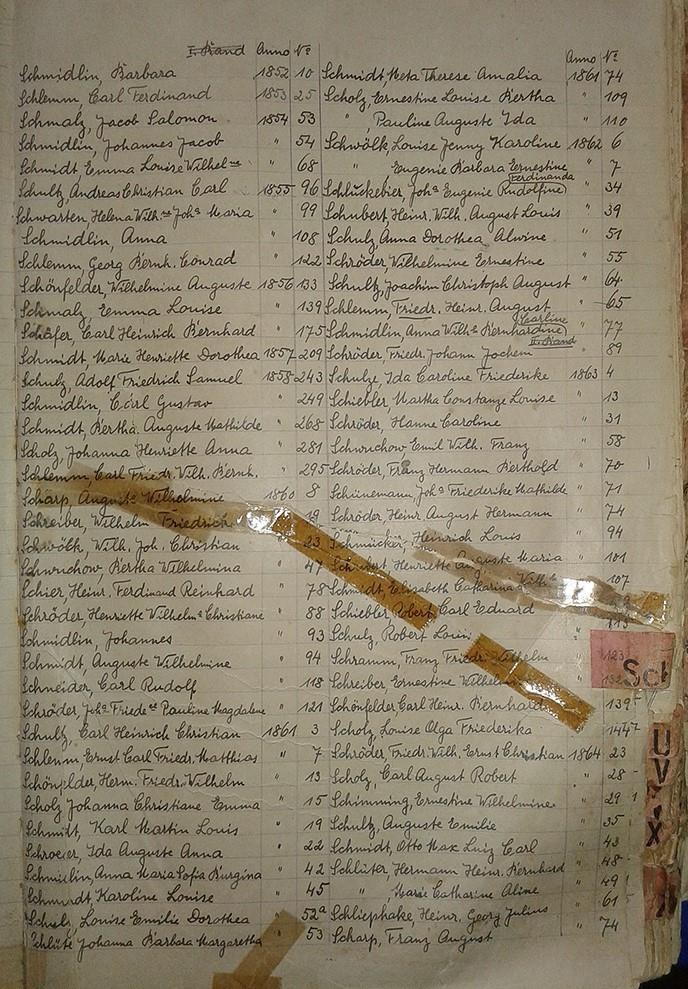 I. Band Anno No
Schmidlin, Barbara 1852 10
Schlemm, Carl Ferdinand 1853 25
Schmalz, Jacob Salomon 1854 53
Schmidlin, Johannes Jacob " 54
Schmidt, Emma Louise Wilhelne " 68
Schultz, Andreas Christian Carl 1855 96
Schwarten, Helena Wilh.ne Joha Maria " 99
Schmidlin, Anna " 108
Schlemm, Georg Bernh. Conrad " 122
Schönfelder, Wilhelmine Auguste 1856 133
Schmalz, Emma Louise " 139
Schäfer, Carl Heinrich Bernhard " 175
Schmidt, Marie Henriette Dorothea 1857 209
Schulz, Adolf Friedrich Samuel 1858 243
Schmidlin, Carl Gustav " 249
Schmidt, Bertha Auguste Mathilde " 268
Scholz, Johanna Henriette Anna " 281
Schlemm, Carl Friedr. Wilh. Bernh. " 295
Scharp, Auguste Wilhelmine 1860 8
Schreiber, Wilhelm Friedrich 19
Schwölk, Wilh. Joh. Christian " 23
Schwuchow, Bertha Wilhelmina " 47
Schier, Heinr. Ferdinand Reinhard " 78
Schröder, Henriette Wilhelma Christiane " 88
Schmidlin, Johannes " 93
Schmidt, Auguste Wilhelmine " 94
Schneider, Carl Rudolf " 118
Schröder, Joha Friedeke Pauline Magdalene " 121
Schultz, Carl Heinrich Christian 1861 3
Schlemm, Ernst Carl Friedr. Matthias " 7
Schönfelder, Herm. Friedr. Wilhelm " 13
Scholz Johanna Christiane Emma " 15
Schmidt, Karl Martin Louis " 19
Schroeder, Ida Auguste Anna " 22
Schmidlin, Anna Maria Sofia Burgina " 42
Schmidt, Karoline Louise " 45
Schulz, Louise Emilie Dorothea " 52a
Schlüte Johanna Barbara Margaretha " 53
Anno No
Schmidt, Meta Therese Amalia 1861 74
Scholz, Ernestine Louise Bertha " 109
" Pauline Auguste Ida " 110
Schwölk, Louise Jenny Karoline 1862 6
" Eugenie Barbara Ernestine " 7
Ferdinanda
Schluskebier, Joha Eugenie Rudolfine " 34
Schubert, Heinr. Wilh. August Louis " 39
Schulz, Anna Dorothea Alwine " 51
Schröder, Wilhelmine Ernestine " 55
Schultz, Joachim Christoph August " 64
Schlemm, Friedr. Heinr. August " 65
Carline
Schmidlin, Anna Wilha Bernhardine " 77
I. Band
Schröder, Friedr. Johann Jochem " 89
Schulze, Ida Caroline Friederike 1863 4
Schiebler, Martha Constanze Louise " 13
Schröder, Hanne Caroline " 31
Schwuchow Emil Wilh. Franz " 58
Schröder, Franz Hermann Berthold " 70
Schünemann, Joha Friederike Mathilde " 71
Schröder Heinr. August Hermann " 74
Schmücker, Heinrich Louis " 94
Schubert, Henriette Auguste Maria " 101
Schmidt, Elisabeth Catharina Wilha 107
Schiebler Robert Carl Eduard " 113
Schulz, Robert Louis "
Schramm, Franz Friedr. Wilhelm " 123
Schreiber, Ernestine Wilhelmine " 132
Schönfelder, Carl Heinr. Bernhard 139
Scholz, Louise Olga Friederika 144
Schröder, Friedr. Wilh. Ernst Christian 1864 23
Scholz, Carl August Robert " 28
Schimming, Ernestine Wilhelmine " 29
Schultz, Auguste Emilie " 35
Schmidt, Otto Max Luiz Carl " 43
Schlüter, Hermann Heinr. Bernhard " 48
" Marie Catharine Aline " 49
Schliephake, Heinr. Georg Julius " 61
Scharp, Franz August " 74
Sch
U
V
X